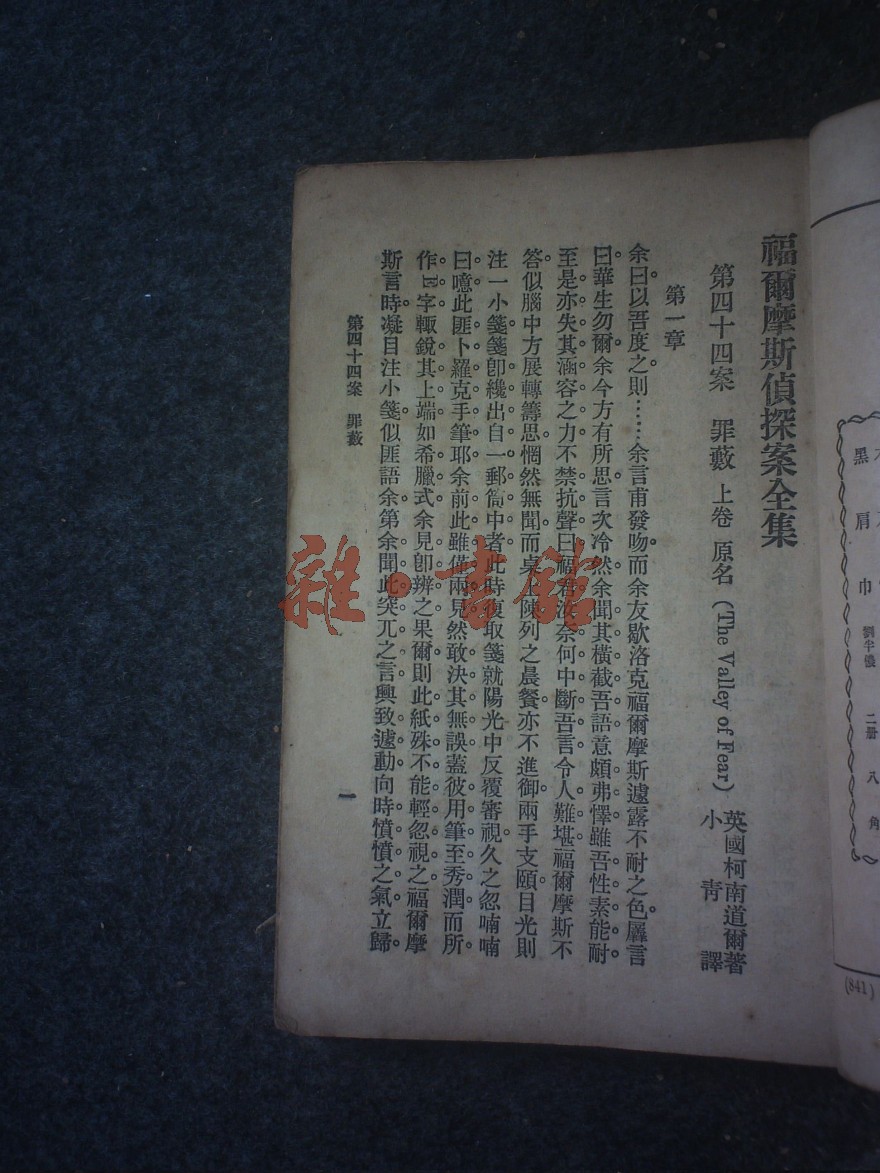 福爾摩斯偵探案全集
第四十四案 罪藪 上卷 原名(The Valley of Fear)
英國柯南道爾著
小靑譯
第一章
余曰。以吾度之。則……余言甫發吻。而余友歇洛克福爾摩斯遽露不耐之色。羼言
曰。華生勿爾。余今方有所思。言次冷然。余聞其橫截吾語。意頗弗懌。雖吾性素能耐。
至是亦失其涵容之力。不禁抗聲曰。福君。汝奈何中斷吾言。令人難堪。福爾摩斯不
答。似腦中方展轉籌思。惘然無聞。而桌上陳列之晨餐。亦不進御。兩手支頤。目光則
注一小箋。箋卽纔出自一郵筩中者。此時復取箋就陽光中反覆審視。久之。忽喃喃
曰。噫。此匪卜羅克手筆耶。余前此雖僅兩見。然敢決其無誤。蓋彼用筆至秀潤。而所
作E字。輙銳其上端如希臘式。余見卽辨之。果爾。則此紙殊不能輕忽視之。福爾摩
斯言時。凝目注小箋。似匪語余。第余聞此突兀之言。興致遽動。向時憤憤之氣立歸
第四十四案 罪藪
一
雜·書館
黑肩巾 劉半儂 二册 八角
(841)